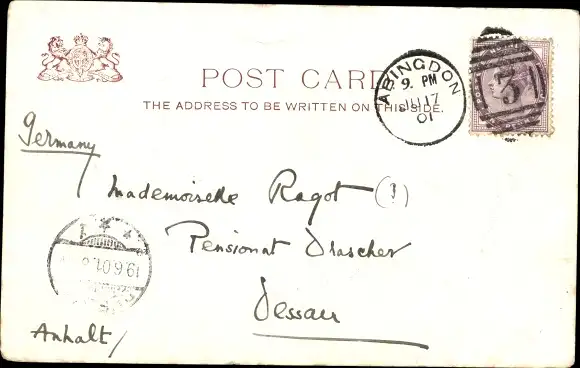 POST CARD
THE ADDRESS TO BE WRITTEN ON THIS SIDE.
ABINGDON
9. PM
JU 17
01
3
Germany
Mademoiselle Ragot (1)
Pensionat Drascher
Dessau
19.6.01.
Anhalt/